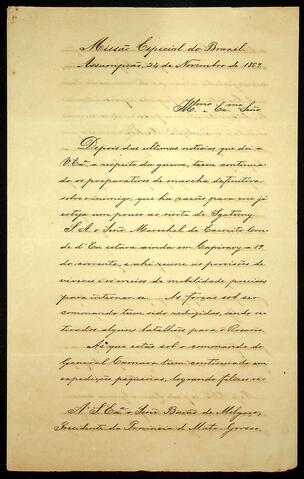 Missão Especial do Brazil.
Assumpção, 24 de Novembro de 1869.
Illmo e Exmo Senr.
Depois das ultimas noticias que dei a
V. Exa. a respeito da guerra, teem continua-
do os preparativos de marcha definitiva
sobre o inimigo, que ha razões para crer já
esteja um pouco ao norte de Igatemy.
S. A. o Senr Marechal de Exercito Con-
de d'Eu estava ainda em Capivary a 19
do corrente, e ahi reune as provisões de
viveres e os meios de mobilidade precisos
para internar-se. As forças sob seu
commando tem sido redigidas, sendo re-
tirados alguns batalhões para o Rosario.
As que estão sob o commando do
General Camara tem continuado em
expedições pequenas, logrando felizes re-
A S. Exa. o Senr Barão de Melgaço,
Presidente da Provincia de Mato Grosso.